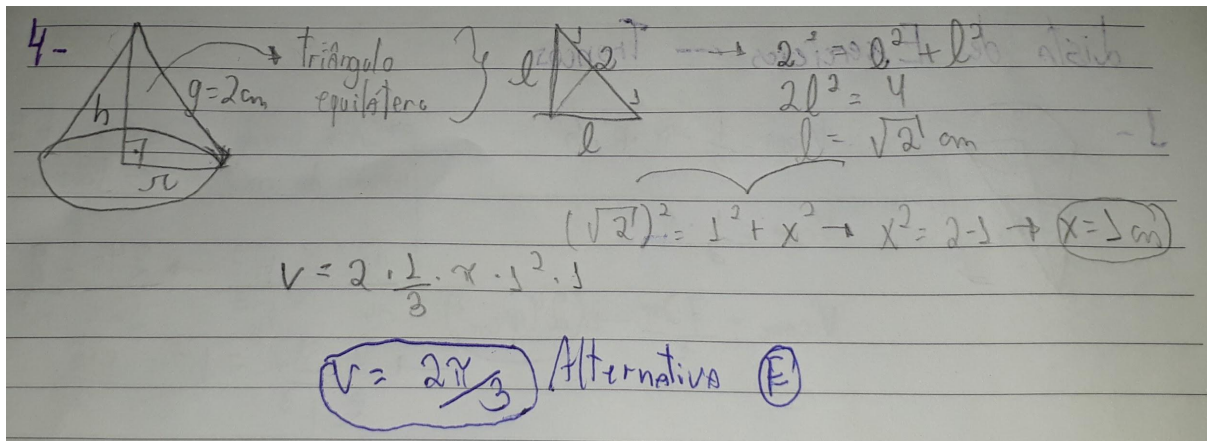 4- triângulo equilátero
g=2cm
h
r
l 1 2 1 l
→ 2² = l² + l²
2l² = 4
l = √2 cm
(√2)² = 1² + x² → x² = 2-1 → x=1 cm
V = 2 · 1/3 · π · 1² · 1
V = 2π/3 Alternativa E